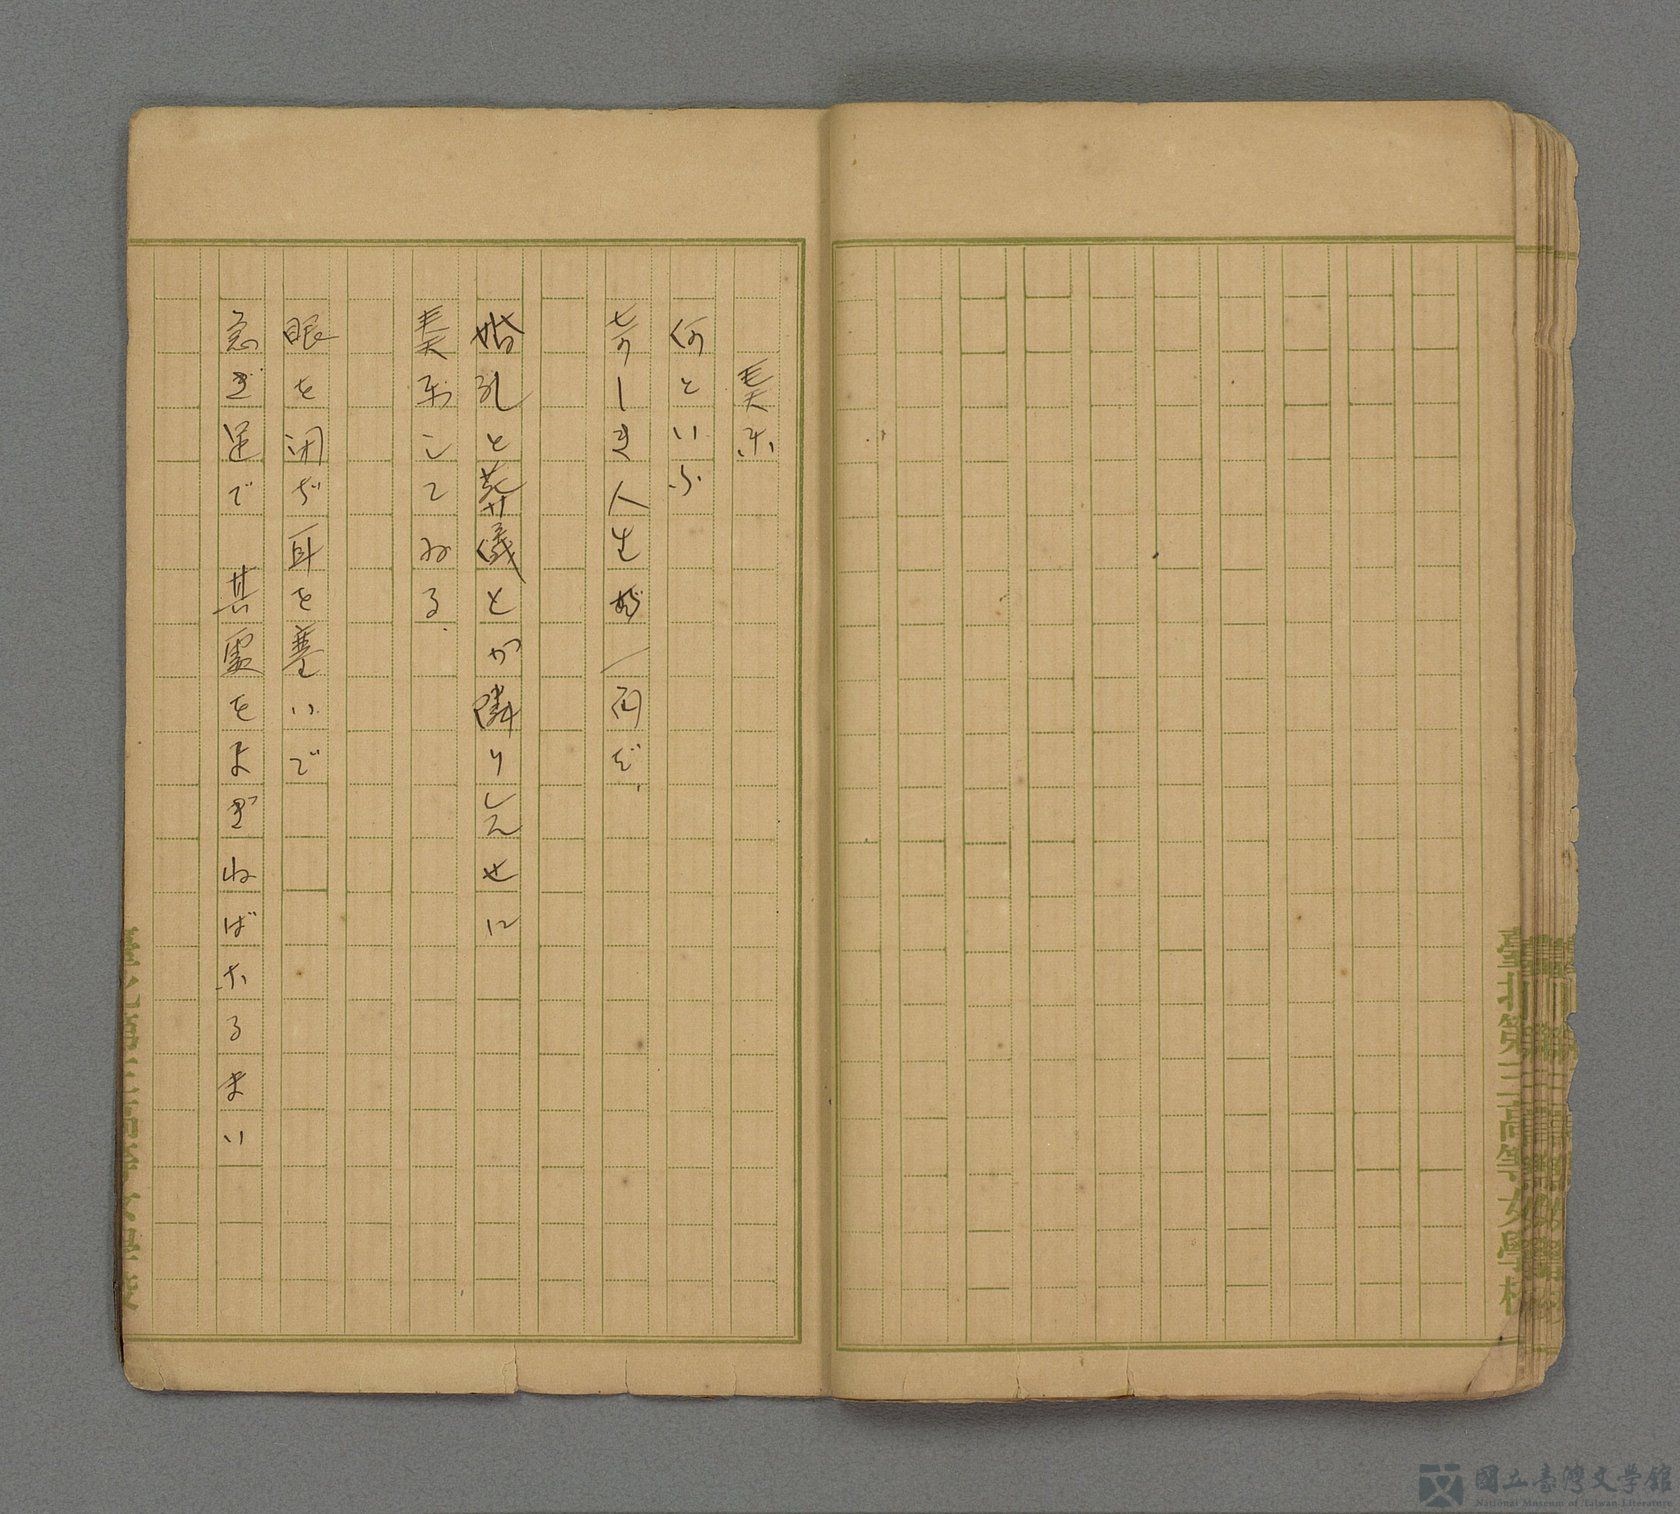 奏楽
何といふ
苛しき人生の一面だ、
婚礼と葬儀とが隣り合せに
奏楽してゐる、
眼を閉ぢ耳を塞いで
急ぎ足で 其處をよぎねばなるまい
臺北第三高等女學校
國立臺灣文學館
National Museum of Taiwan Literature